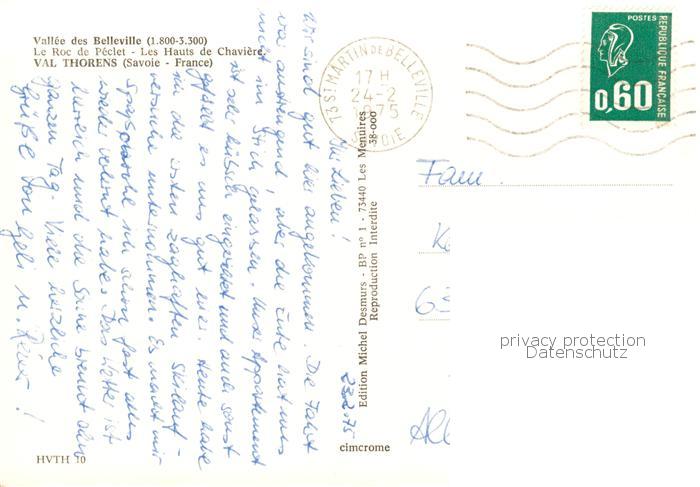 Vallée des Belleville (1.800-3.300)
Le Roc de Péclet - Les Hauts de Chavière.
VAL THORENS (Savoie - France)
23.2.75
Ihr Lieben!
Wir sind gut hier angekommen. Die Fahrt
war anstrengend, aber die Ente hat uns
nicht im Stich gelassen. Unser Appartement
ist sehr hübsch eingerichtet und auch sonst
gefällt es uns gut hier. Heute habe
ich die ersten zaghaften Skilauf-
versuche unternommen. Es macht mir
Spaß, obwohl ich schon fast alles
wieder verlernt habe. Das Wetter ist
herrlich und die Sonne brennt den
ganzen Tag. Viele herzliche
Grüße von Geli u. Rainer!
HVTH 10
cimcrome
Edition Michel Desmurs - BP n° 1 - 73440 Les Menuires
Reproduction Interdite
38-000
73 ST MARTIN DE BELLEVILLE
17 H
24-2
1975
SAVOIE
POSTES
REPUBLIQUE FRANÇAISE
0,60
Fam.
63
privacy protection
Datenschutz